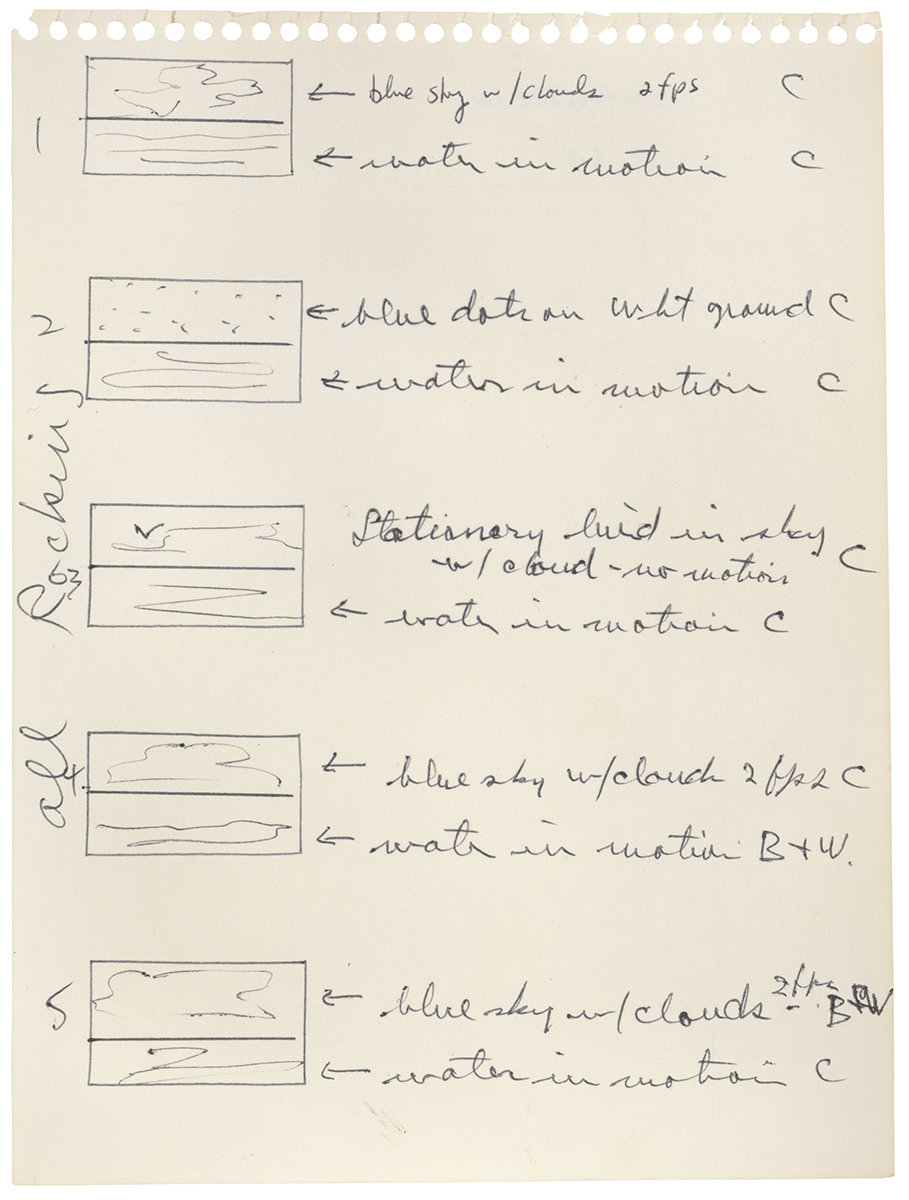 1
← blue sky w/clouds 2 fps C
← water in motion C
2
← blue dots on wht ground C
← water in motion C
3
Stationary bird in sky C
w/ cloud - no motion
← water in motion C
4
← blue sky w/clouds 2 fps C
← water in motion B+W.
5
← blue sky w/clouds 2 fps B+W
← water in motion C
all Rocking